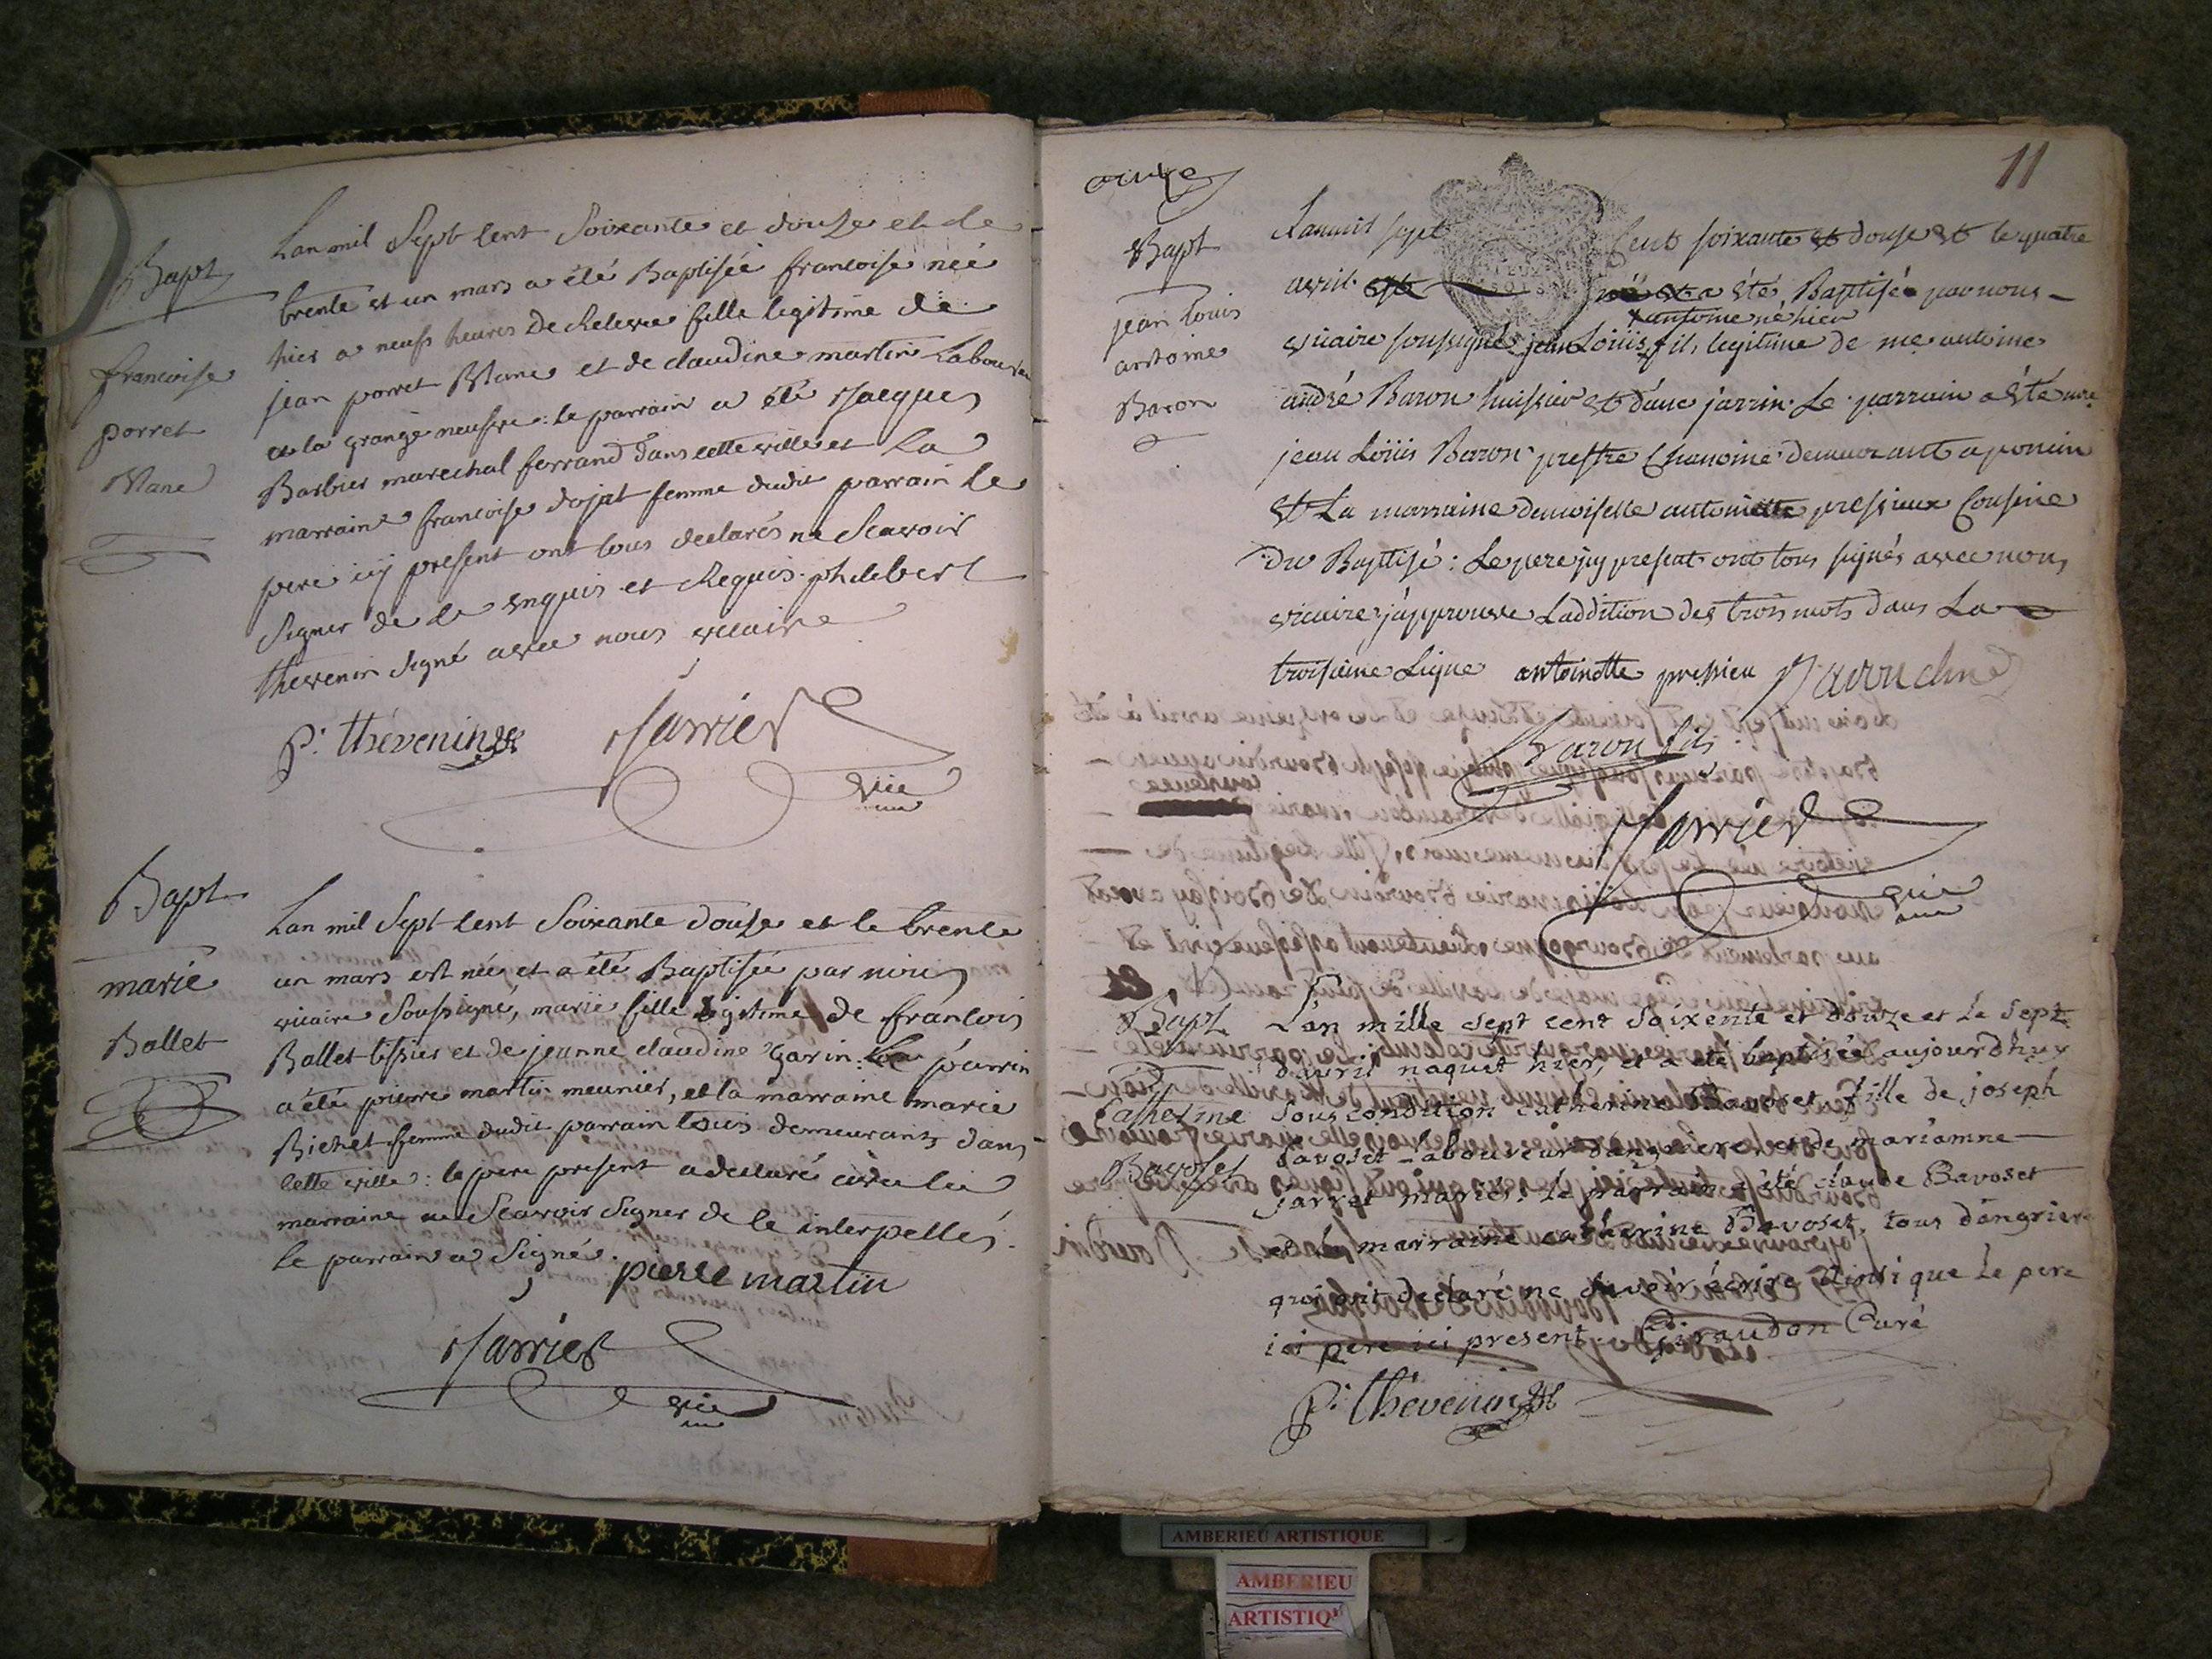 Bapt
francoise
porret
Blanc
Lan mil Sept Cent Soixante et douze et le
trente et un mars a été Baptisée francoise née
hier a neufs heures De Relevee fille legitime de
jean porret Blanc et de claudine martin Laboureur
a la grange neufve : le parrain a été Jacques
Barbier marechal ferrand dans cette ville et La
marraine francoise dojat femme dudit parrain le
pere icy present ont tous declarés ne Scavoir
Signer de ce enquis et Requis. philebert
thevenin Signé avec nous vicaire
P. thévenin Jarrier
vic
Bapt
marie
Ballet
Lan mil Sept Cent Soixante douze et le trente
un mars est née et a été Baptisée par nous
vicaire Soussigné, marie fille legitime de francois
Ballet tissier et de jeanne claudine Garin. Le parrin
a été pierre martin meunier, et la marraine marie
Richet femme dudit parrain tous demeurants dans
cette ville : le pere present a declaré avec la
marraine ne Scavoir Signer de ce interpellés.
le parrain a Signé.
pierre martin
Jarrier
vic
onze
11
Bapt
jean louis
antoine
Baron
Lanmil sept Cent soixante et douse et le quatre
avril né et a été Baptisé par nous
antoine né hier
vicaire soussigné jean Loüis fils legitime de me antoine
andré Baron huissier et danc jarrin. Le parrain a été mre
jean Loüis Baron prestre Chanoine demeurant a poncin
et La marraine demoiselle antoinette pressieux Cousine
du Baptisé : Le pere icy present ont tous signés avec nous
vicaire j'approuve Laddition des trois mots dans La
troisieme Ligne antoinette pressieu
Baron fils
Jarrier
vic
Bapt
Catherine
Bavoset
L'an mille sept cent soixente et douze et le sept
d'avril naquit hier, et a été baptisée aujourdhuy
sous condition catherine Bavoset fille de joseph
Bavoset Laboureur dangriere, et de mariamne
jarret mariés. Le parrain a été claude Bavoset
et la marraine catherine Bavoset, tous dangriere
qui ont declaré ne savoir écrire ainsi que le pere
ici pere ici present. Giraudon Curé
P. thévenin
AMBERIEU ARTISTIQUE
AMBERIEU
ARTISTIQ